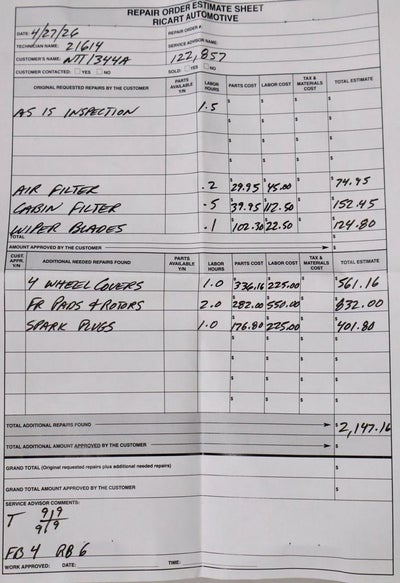 REPAIR ORDER ESTIMATE SHEET
RICART AUTOMOTIVE
DATE: 4/27/26 REPAIR ORDER #:
TECHNICIAN NAME: 21614 SERVICE ADVISOR NAME:
CUSTOMER'S NAME: NTI1344A 122,857
CUSTOMER CONTACTED: YES NO SOLD: YES NO
ORIGINAL REQUESTED REPAIRS BY THE CUSTOMER PARTS AVAILABLE Y/N LABOR HOURS PARTS COST LABOR COST TAX & MATERIALS COST TOTAL ESTIMATE
AS IS INSPECTION 1.5 $ $ $ $
$ $ $ $
$ $ $ $
$ $ $ $
AIR FILTER .2 $29.95 $45.00 $ $74.95
CABIN FILTER .5 $39.95 $112.50 $ $152.45
WIPER BLADES .1 $102.30 $22.50 $ $124.80
TOTAL
AMOUNT APPROVED BY THE CUSTOMER $
CUST. APPR. Y/N ADDITIONAL NEEDED REPAIRS FOUND PARTS AVAILABLE Y/N LABOR HOURS PARTS COST LABOR COST TAX & MATERIALS COST TOTAL ESTIMATE
4 WHEEL COVERS 1.0 $336.16 $225.00 $ $561.16
FR PADS & ROTORS 2.0 $282.00 $550.00 $ $832.00
SPARK PLUGS 1.0 $176.80 $225.00 $ $401.80
$ $ $ $
$ $ $ $
$ $ $ $
$ $ $ $
TOTAL ADDITIONAL REPAIRS FOUND $2,147.16
TOTAL ADDITIONAL AMOUNT APPROVED BY THE CUSTOMER $
GRAND TOTAL (Original requested repairs plus additional needed repairs) $
GRAND TOTAL AMOUNT APPROVED BY THE CUSTOMER $
SERVICE ADVISOR COMMENTS:
T 9/9
9/9
FB 4 RB 6
WORK APPROVED: DATE: TIME: